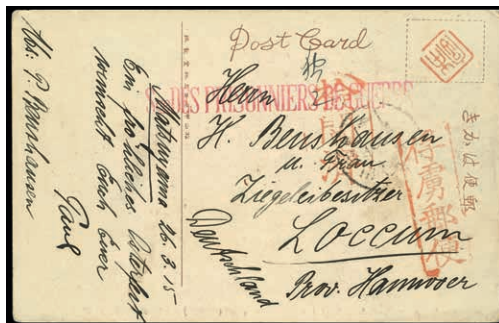 Post Card
S. DES PRISONNIERS DE GUERRE
Herrn
H. Benshausen
u. Frau
Ziegeleibesitzer
Loccum
Prov. Hannover
Deutschland
Matsuyama 26.3.15
Ein fröhliches Osterfest
wünscht Euch Euer
Paul
Abs. P. Benshausen
俘虜郵便